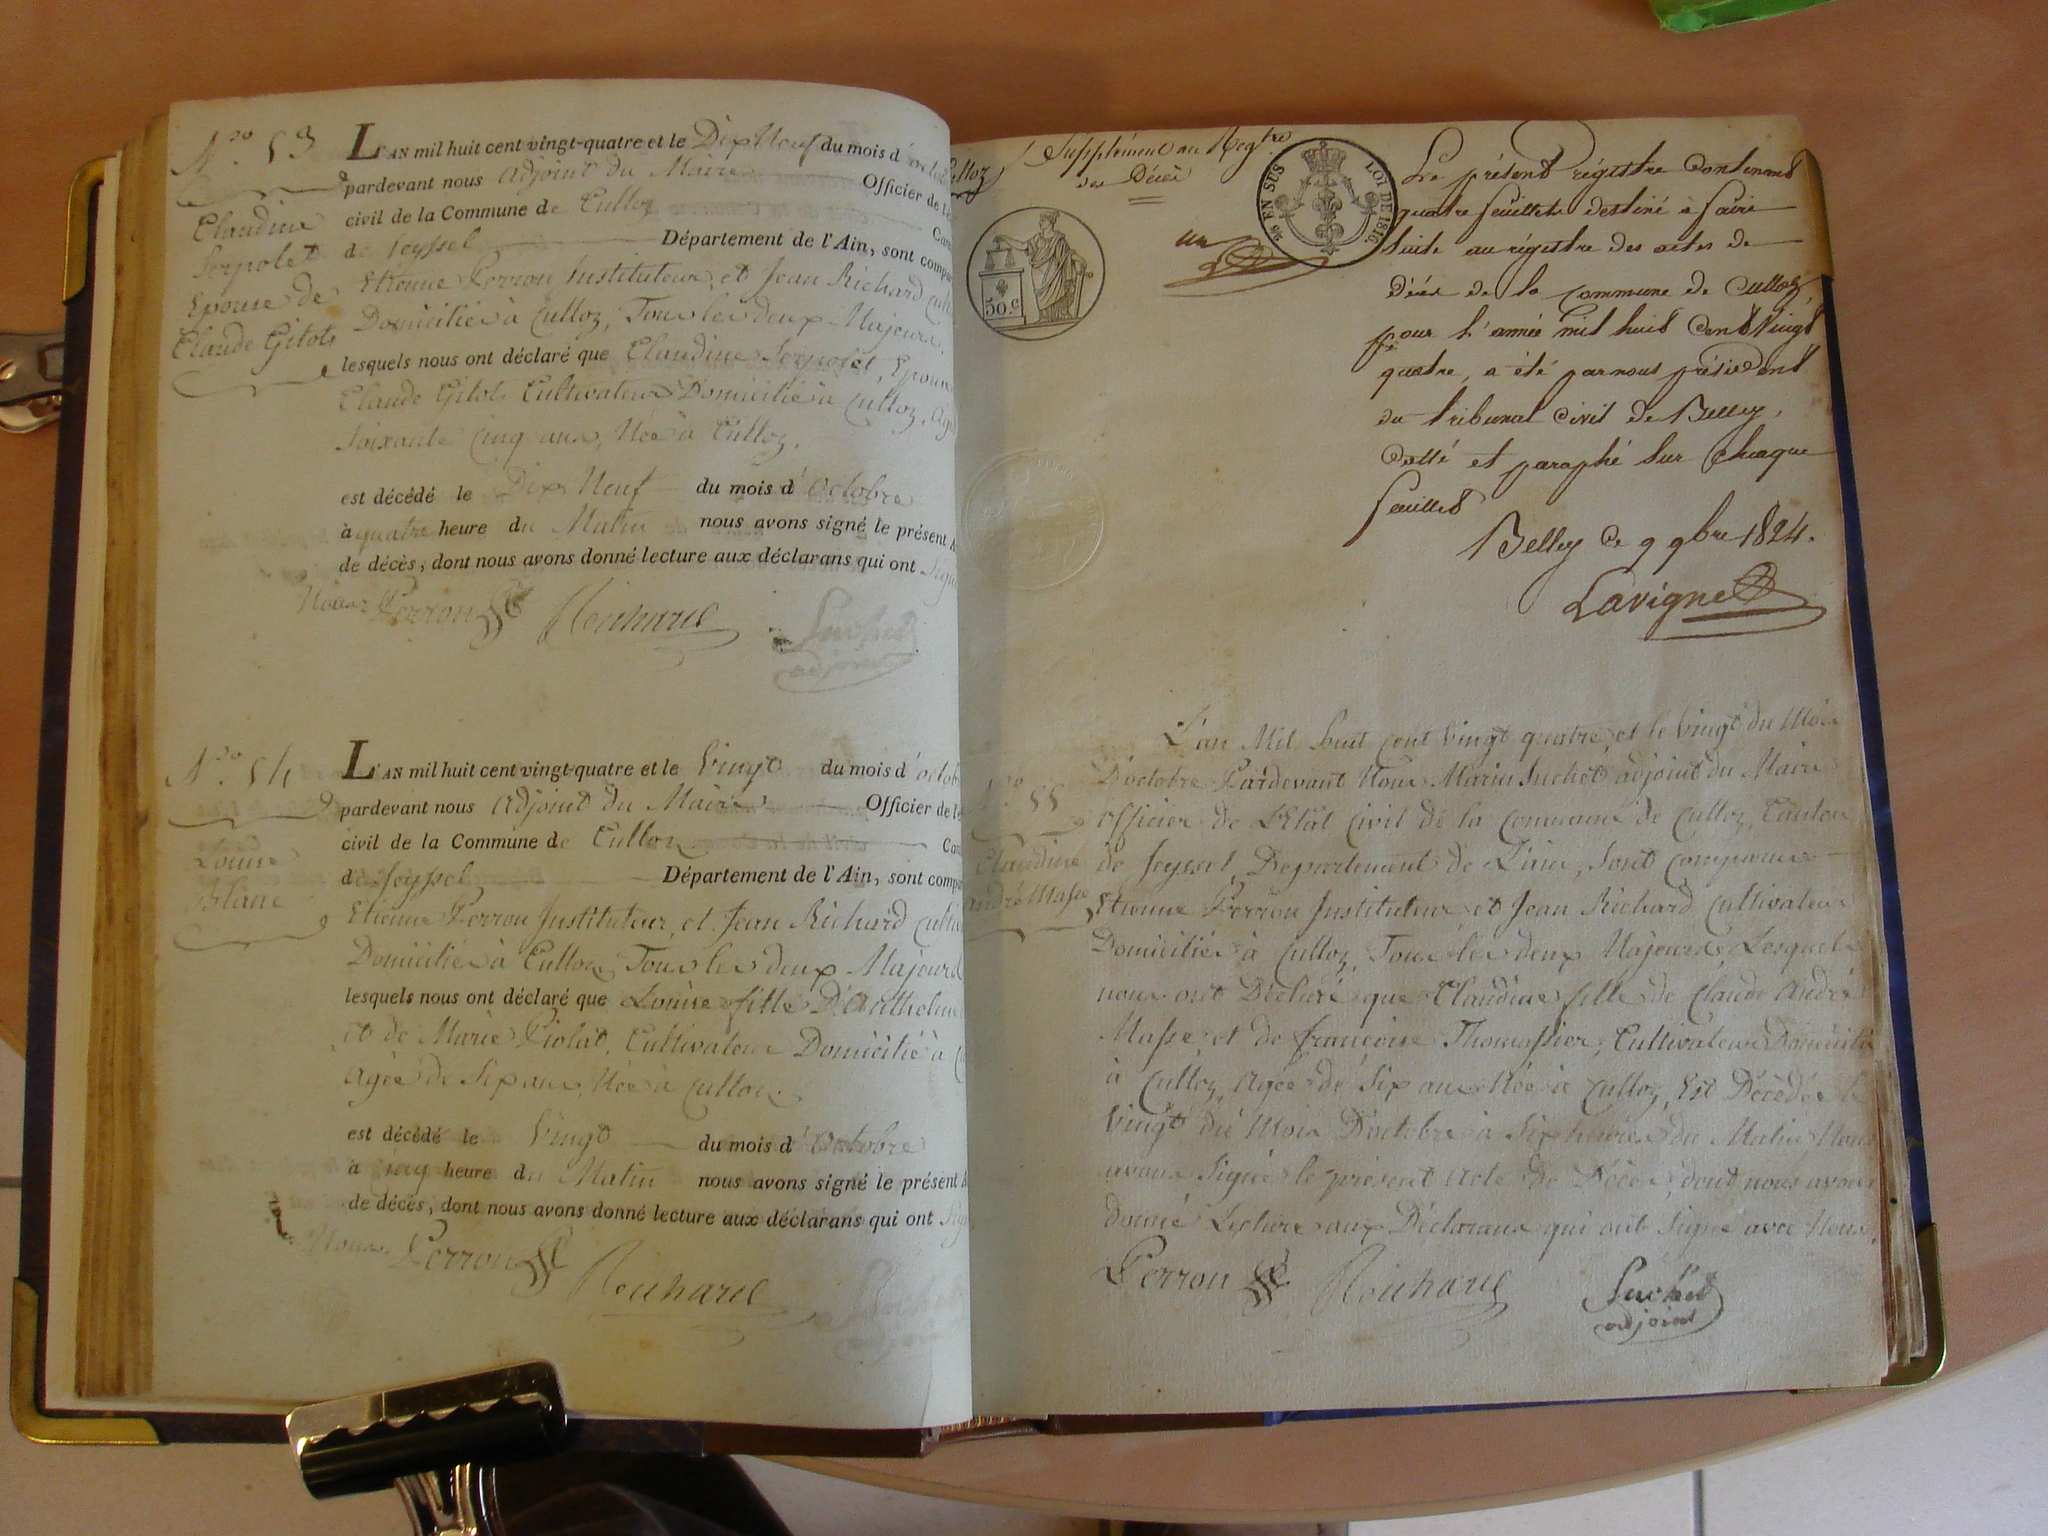 N.ro 53
Claudine
Serpolet
Epouse de
Claude Gitots
L'AN mil huit cent vingt-quatre et le Dix Neuf du mois d'octob
pardevant nous adjoint du Maire Officier de l'é
civil de la Commune de Culloz Can
de Seyssel Département de l'Ain, sont compa
Etienne Perron Instituteur, et Jean Richard cult
Domiciliés à Culloz, Tous les deux Majeurs,
lesquels nous ont déclaré que Claudine Serpolet, Epouse
Claude Gitots Cultivateur Domicilié à Culloz, Agé
Soixante cinq ans, Née à Culloz.
est décédé le Dix Neuf du mois d'Octobre
à quatre heure du Matin nous avons signé le présent A
de décès, dont nous avons donné lecture aux déclarans qui ont Signé
Nous Perron Richard Suchet
adjoint
N.ro 54
Louise
Blanc
L'AN mil huit cent vingt-quatre et le Vingt du mois d'octob
pardevant nous adjoint du Maire Officier de l'é
civil de la Commune de Culloz Can
de Seyssel Département de l'Ain, sont compa
Etienne Perron Instituteur, et Jean Richard Cultiv
Domiciliés à Culloz, Tous les deux Majeurs
lesquels nous ont déclaré que Louise fille D'Anthelme
et de Marie Piolat, Cultivateur Domicilié à C
Agée de Six ans, Née à Culloz.
est décédé le Vingt du mois d'Octobre
à cinq heure du Matin nous avons signé le présent A
de décès, dont nous avons donné lecture aux déclarans qui ont Sig
Nous Perron Richard
Culloz
Supplément au Regtre
des Décès
50.c
un
28 EN SUS LOI DE 1816
Le présent régistre contenant
quatre feuillets destiné à faire
suite au régistre des actes de
décès de la commune de Culloz,
pour l'année mil huit cent vingt
quatre, a été par nous président
du tribunal civil de Belley,
cotté et paraphé sur chaque
feuillet
Belley ce 9 9bre 1824.
Lavigne
N.ro 55
Claudine
André Masse
L'an Mil huit cent vingt quatre, et le vingt du Mois
D'octobre Pardevant Nous Marin Suchet adjoint du Maire
officier de L'Etat Civil de la Commune de Culloz, Canton
de Seyssel, Département de L'ain, Sont comparus
Etienne Perron Instituteur et Jean Richard Cultivateur
Domiciliés à Culloz, Tous les deux Majeurs, Lesquels
nous ont Déclaré que Claudine fille de Claude André
Masse et de françoise Thomassier, Cultivateur Domicilié
à Culloz, Agée de Six ans Née à Culloz, Est Décédée le
Vingt du Mois D'octobre à Six heures du Matin, Nous
avons Signé le présent Acte de Décès, dont nous avons
donné Lecture aux Déclarans qui ont Signé avec Nous.
Perron Richard Suchet
adjoint